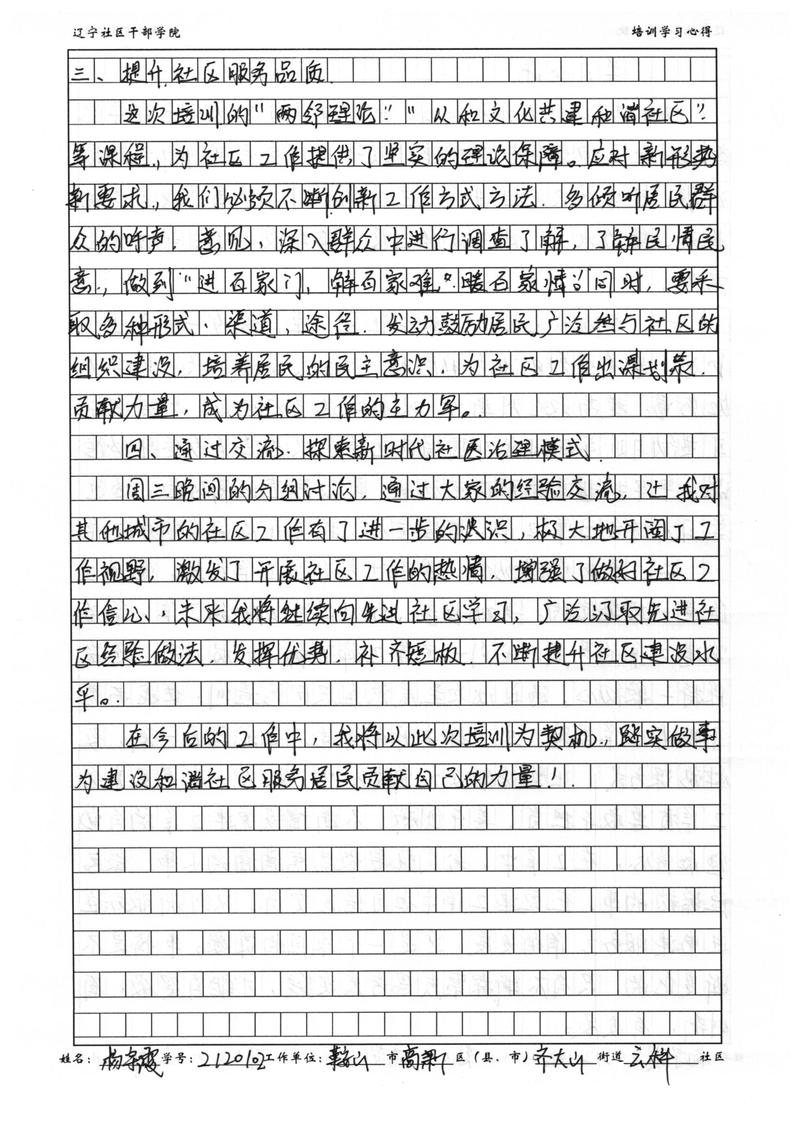 辽宁社区干部学院 培训学习心得
三、提升社区服务品质.
这次培训的“两邻理论”“从和文化共建和谐社区”
等课程,为社区工作提供了坚实的理论保障。应对新形势
新要求,我们必须不断创新工作方式方法.多倾听居民群
众的呼声,意见,深入群众中进行调查了解,了解民情民
意,做到“进百家门,解百家难,暖百家情”同时,要采
取多种形式,渠道,途径.发动鼓励居民广泛参与社区的
组织建设,培养居民的民主意识,为社区工作出谋划策.
贡献力量,成为社区工作的主力军。
四、通过交流.探索新时代社区治理模式.
周三晚间的分组讨论,通过大家的经验交流,让我对
其他城市的社区工作有了进一步的认识,极大地开阔了工
作视野,激发了开展社区工作的热情,增强了做好社区工
作信心,未来我将继续向先进社区学习,广泛汲取先进社
区经验做法.发挥优势,补齐短板.不断提升社区建设水
平。
在今后的工作中,我将以此次培训为契机,踏实做事
为建设和谐社区服务居民贡献自己的力量!
姓名: 学号:2120102工作单位:鞍山市高新区(县、市)齐大山街道云祥社区